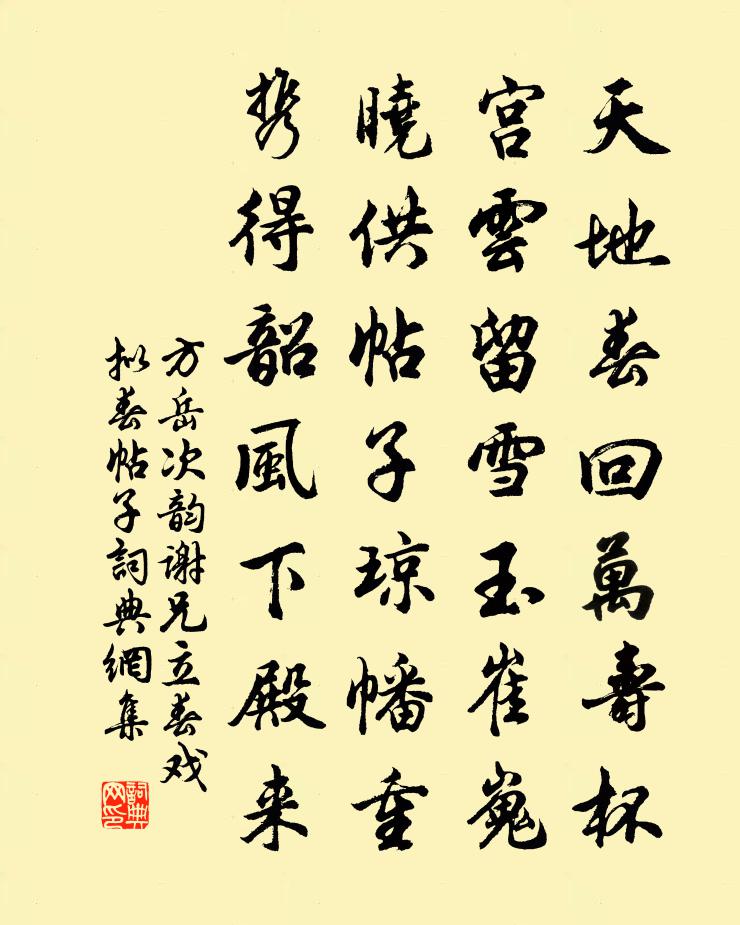 天地春回萬壽杯
宫雲留雪玉崔嵬
曉供帖子琼幡重
携得韶風下殿来
方岳次韵谢兄立春戏
拟春帖子詞典網集
詞典网印